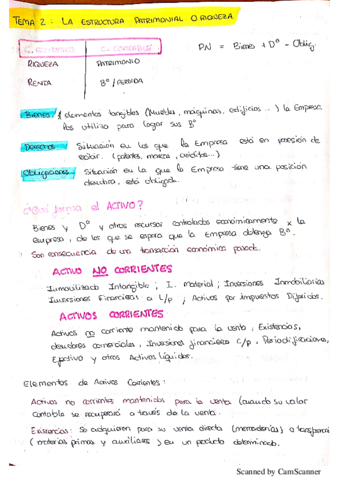 TEMA 2: LA ESTRUCTURA PATRIMONIAL O RIQUEZA
C. ECONÓMICO C. CONTABLES PN = Bienes + Dº - Oblig.
RIQUEZA PATRIMONIO
RENTA Bº / PÉRDIDA
Bienes elementos tangibles (Muebles, máquinas, edificios...) la Empresa
los utiliza para lograr sus Bº
Derechos Situación en los que la Empresa está en posición de
exigir. (patentes, marca, créditos...)
Obligaciones Situación en la que la Empresa tiene una posición
deudora, está obligada.
¿Qué forma el ACTIVO?
Bienes y Dº y otros recursos controlados económicamente x la
empresa, de los que se espera que la Empresa obtenga Bº.
Son consecuencia de una transacción económica pasada.
ACTIVO NO CORRIENTES
Inmovilizado Intangible; I. Material; Inversiones Inmobiliarias
Inversiones Financieras a L/p; Activos por Impuestos Diferidos.
ACTIVOS CORRIENTES
Activos no corriente mantenido para la venta, Existencias,
deudores comerciales, Inversiones financieras c/p, Periodificaciones,
Efectivo y otros Activos líquidos.
Elementos de Activos Corrientes:
Activos no corrientes mantenidos para la venta (cuando su valor
contable se recuperará a través de la venta.
Existencias: Se adquieren para su venta directa (mercaderías) o transformarlas
(materias primas y auxiliares) en un producto determinado.
Scanned by CamScanner